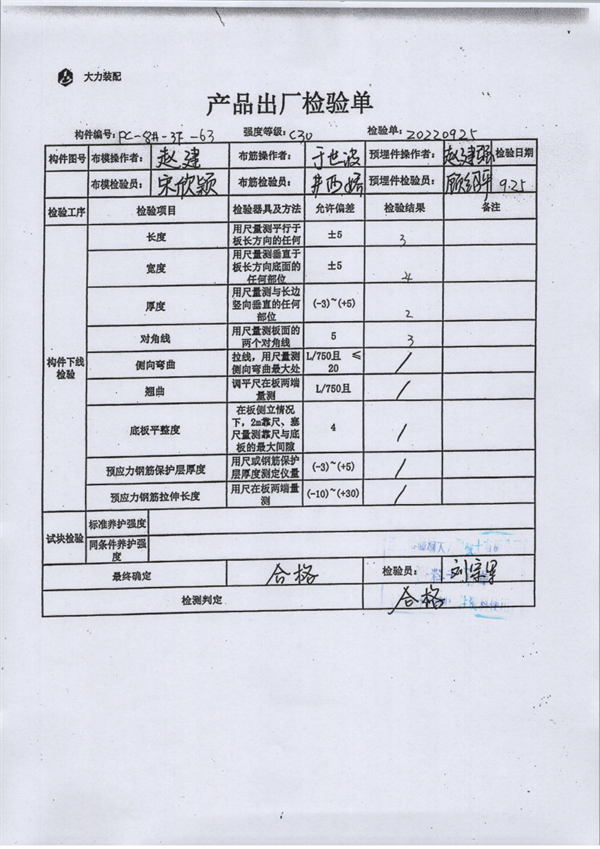 大力装配
产品出厂检验单
构件编号: PC-8#-3F-63 强度等级: C30 检验单: 20220925
构件图号 布模操作者: 赵建 布筋操作者: 于世波 预埋件操作者: 赵建强 检验日期
布模检验员: 宋欣颖 布筋检验员: 预埋件检验员: 9.25
检验工序 检验项目 检验器具及方法 允许偏差 检验结果 备注
构件下线检验
长度 用尺量测平行于板长方向的任何 ±5 3
宽度 用尺量测垂直于板长方向底面的任何部位 ±5 4
厚度 用尺量测与长边竖向垂直的任何部位 (-3)~(+5) 2
对角线 用尺量测板面的两个对角线 5 3
侧向弯曲 拉线，用尺量测侧向弯曲最大处 L/750且 ≤20 /
翘曲 调平尺在板两端量测 L/750且 /
底板平整度 在板侧立情况下，2m靠尺、塞尺量测靠尺与底板的最大间隙 4 /
预应力钢筋保护层厚度 用尺或钢筋保护层厚度测定仪量 (-3)~(+5) /
预应力钢筋拉伸长度 用尺在板两端量测 (-10)~(+30) /
试块检验 标准养护强度
同条件养护强度
最终确定 合格 检验员:
检测判定 合格